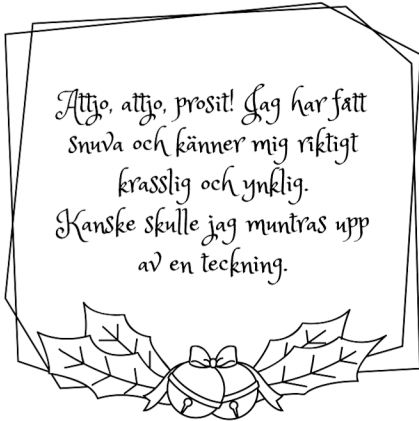 Attjo, attjo, prosit! Jag har fått
snuva och känner mig riktigt
krasslig och ynklig.
Kanske skulle jag muntras upp
av en teckning.